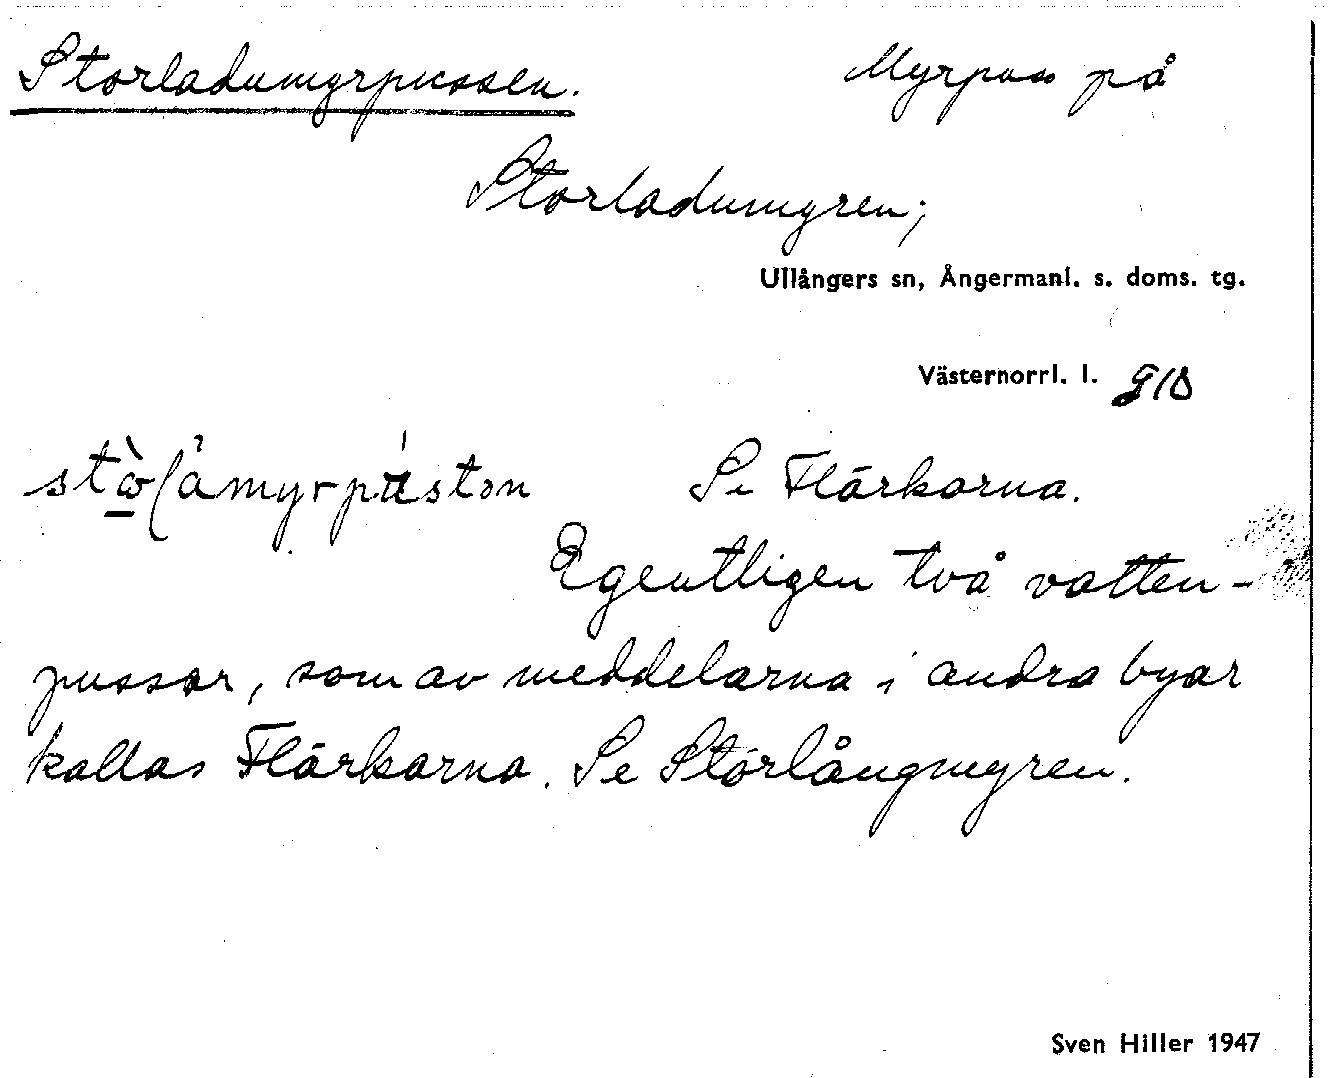 Storladumyrpussen. Myrpuss på
Storladumyren;
Ullångers sn, Ångermanl. s. doms. tg.
Västernorrl. l.
Se Flärkarna.
Egentligen två vatten-
pussar, som av meddelarna i andra byar
kallas Flärkarna. Se Storlångmyren.
Sven Hiller 1947